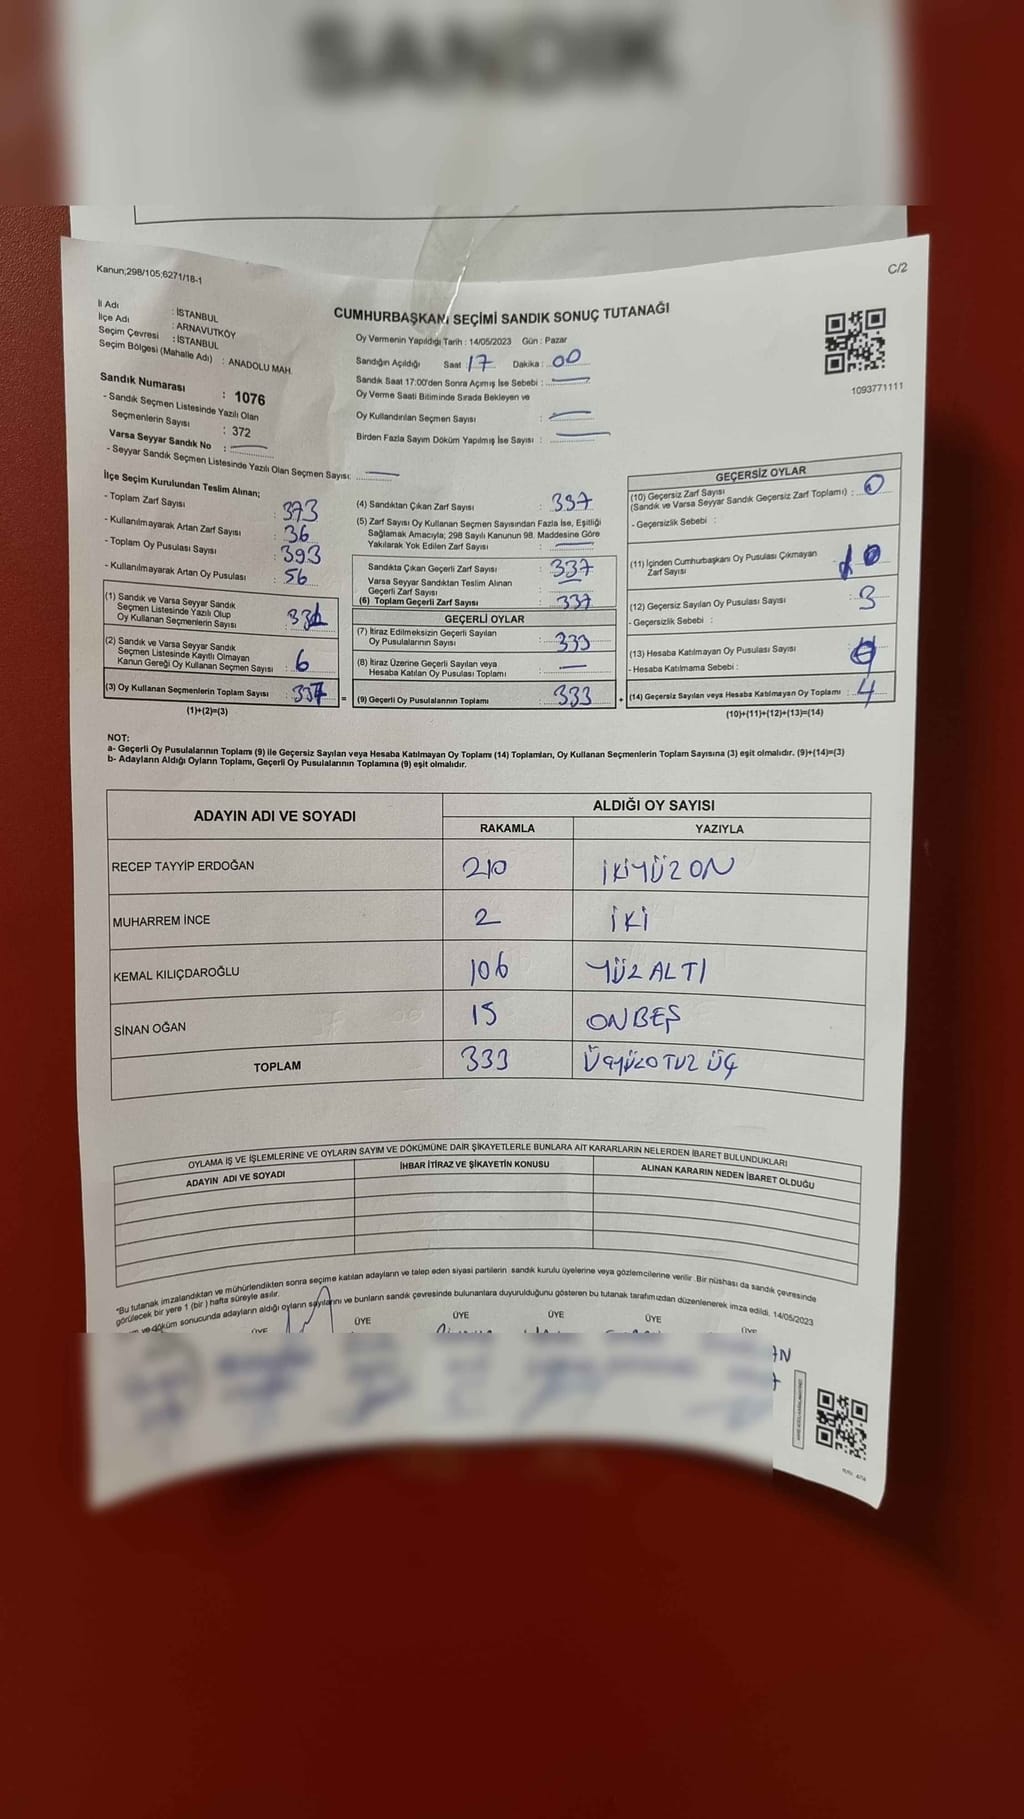 SANDIK
Kanun;298/105;6271/18-1
C/2
İl Adı : İSTANBUL
İlçe Adı : ARNAVUTKÖY
Seçim Çevresi : İSTANBUL
Seçim Bölgesi (Mahalle Adı) : ANADOLU MAH.
Sandık Numarası : 1076
- Sandık Seçmen Listesinde Yazılı Olan
Seçmenlerin Sayısı : 372
Varsa Seyyar Sandık No :
- Seyyar Sandık Seçmen Listesinde Yazılı Olan Seçmen Sayısı:
CUMHURBAŞKANI SEÇİMİ SANDIK SONUÇ TUTANAĞI
Oy Vermenin Yapıldığı Tarih : 14/05/2023 Gün : Pazar
Sandığın Açıldığı Saat : 17 Dakika : 00
Sandık Saat 17:00'den Sonra Açımış İse Sebebi :
Oy Verme Saati Bitiminde Sırada Bekleyen ve
Oy Kullandırılan Seçmen Sayısı :
Birden Fazla Sayım Döküm Yapılmış İse Sayısı :
1093771111
İlçe Seçim Kurulundan Teslim Alınan;
- Toplam Zarf Sayısı : 373
- Kullanılmayarak Artan Zarf Sayısı : 36
- Toplam Oy Pusulası Sayısı : 393
- Kullanılmayarak Artan Oy Pusulası : 56
(1) Sandık ve Varsa Seyyar Sandık
Seçmen Listesinde Yazılı Olup
Oy Kullanan Seçmenlerin Sayısı :
(2) Sandık ve Varsa Seyyar Sandık
Seçmen Listesinde Kayıtlı Olmayan
Kanun Gereği Oy Kullanan Seçmen Sayısı : 6
(3) Oy Kullanan Seçmenlerin Toplam Sayısı : 337 =
(1)+(2)=(3)
(4) Sandıktan Çıkan Zarf Sayısı : 337
(5) Zarf Sayısı Oy Kullanan Seçmen Sayısından Fazla İse, Eşitliği
Sağlamak Amacıyla; 298 Sayılı Kanunun 98. Maddesine Göre
Yakılarak Yok Edilen Zarf Sayısı :
Sandıkta Çıkan Geçerli Zarf Sayısı : 337
Varsa Seyyar Sandıktan Teslim Alınan
Geçerli Zarf Sayısı :
(6) Toplam Geçerli Zarf Sayısı : 337
GEÇERLİ OYLAR
(7) İtiraz Edilmeksizin Geçerli Sayılan
Oy Pusulalarının Sayısı : 333
(8) İtiraz Üzerine Geçerli Sayılan veya
Hesaba Katılan Oy Pusulası Toplamı :
(9) Geçerli Oy Pusulalarının Toplamı : 333 +
GEÇERSİZ OYLAR
(10) Geçersiz Zarf Sayısı
(Sandık ve Varsa Seyyar Sandık Geçersiz Zarf Toplamı) : 0
- Geçersizlik Sebebi :
(11) İçinden Cumhurbaşkanı Oy Pusulası Çıkmayan
Zarf Sayısı :
(12) Geçersiz Sayılan Oy Pusulası Sayısı : 3
- Geçersizlik Sebebi :
(13) Hesaba Katılmayan Oy Pusulası Sayısı :
- Hesaba Katılmama Sebebi :
(14) Geçersiz Sayılan veya Hesaba Katılmayan Oy Toplamı : 4
(10)+(11)+(12)+(13)=(14)
NOT:
a- Geçerli Oy Pusulalarının Toplamı (9) ile Geçersiz Sayılan veya Hesaba Katılmayan Oy Toplamı (14) Toplamları, Oy Kullanan Seçmenlerin Toplam Sayısına (3) eşit olmalıdır. (9)+(14)=(3)
b- Adayların Aldığı Oyların Toplamı, Geçerli Oy Pusulalarının Toplamına (9) eşit olmalıdır.
ADAYIN ADI VE SOYADI
ALDIĞI OY SAYISI
RAKAMLA YAZIYLA
RECEP TAYYİP ERDOĞAN 210 İKİYÜZ ON
MUHARREM İNCE 2 İKİ
KEMAL KILIÇDAROĞLU 106 YÜZ ALTI
SİNAN OĞAN 15 ONBEŞ
TOPLAM 333 ÜÇYÜZOTUZ ÜÇ
OYLAMA İŞ VE İŞLEMLERİNE VE OYLARIN SAYIM VE DÖKÜMÜNE DAİR ŞİKAYETLERLE BUNLARA AİT KARARLARIN NELERDEN İBARET BULUNDUKLARI
ADAYIN ADI VE SOYADI İHBAR İTİRAZ VE ŞİKAYETİN KONUSU ALINAN KARARIN NEDEN İBARET OLDUĞU
"Bu tutanak imzalandıktan ve mühürlendikten sonra seçime katılan adayların ve talep eden siyasi partilerin sandık kurulu üyelerine veya gözlemcilerine verilir. Bir nüshası da sandık çevresinde
görülecek bir yere 1 (bir) hafta süreyle asılır.
ve döküm sonucunda adayların aldığı oyların sayılarını ve bunların sandık çevresinde bulunanlara duyurulduğunu gösteren bu tutanak tarafımızdan düzenlenerek imza edildi. 14/05/2023
ÜYE ÜYE ÜYE ÜYE ÜYE ÜYE